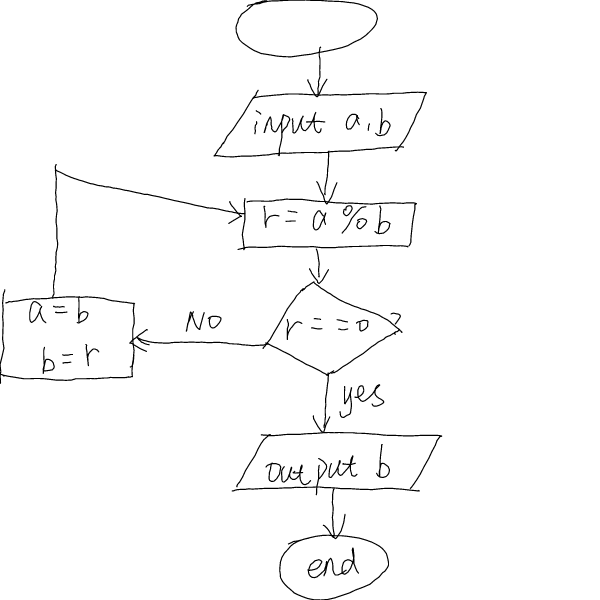 input a,b
r=a%b
r==0?
NO
a=b
b=r
yes
output b
end